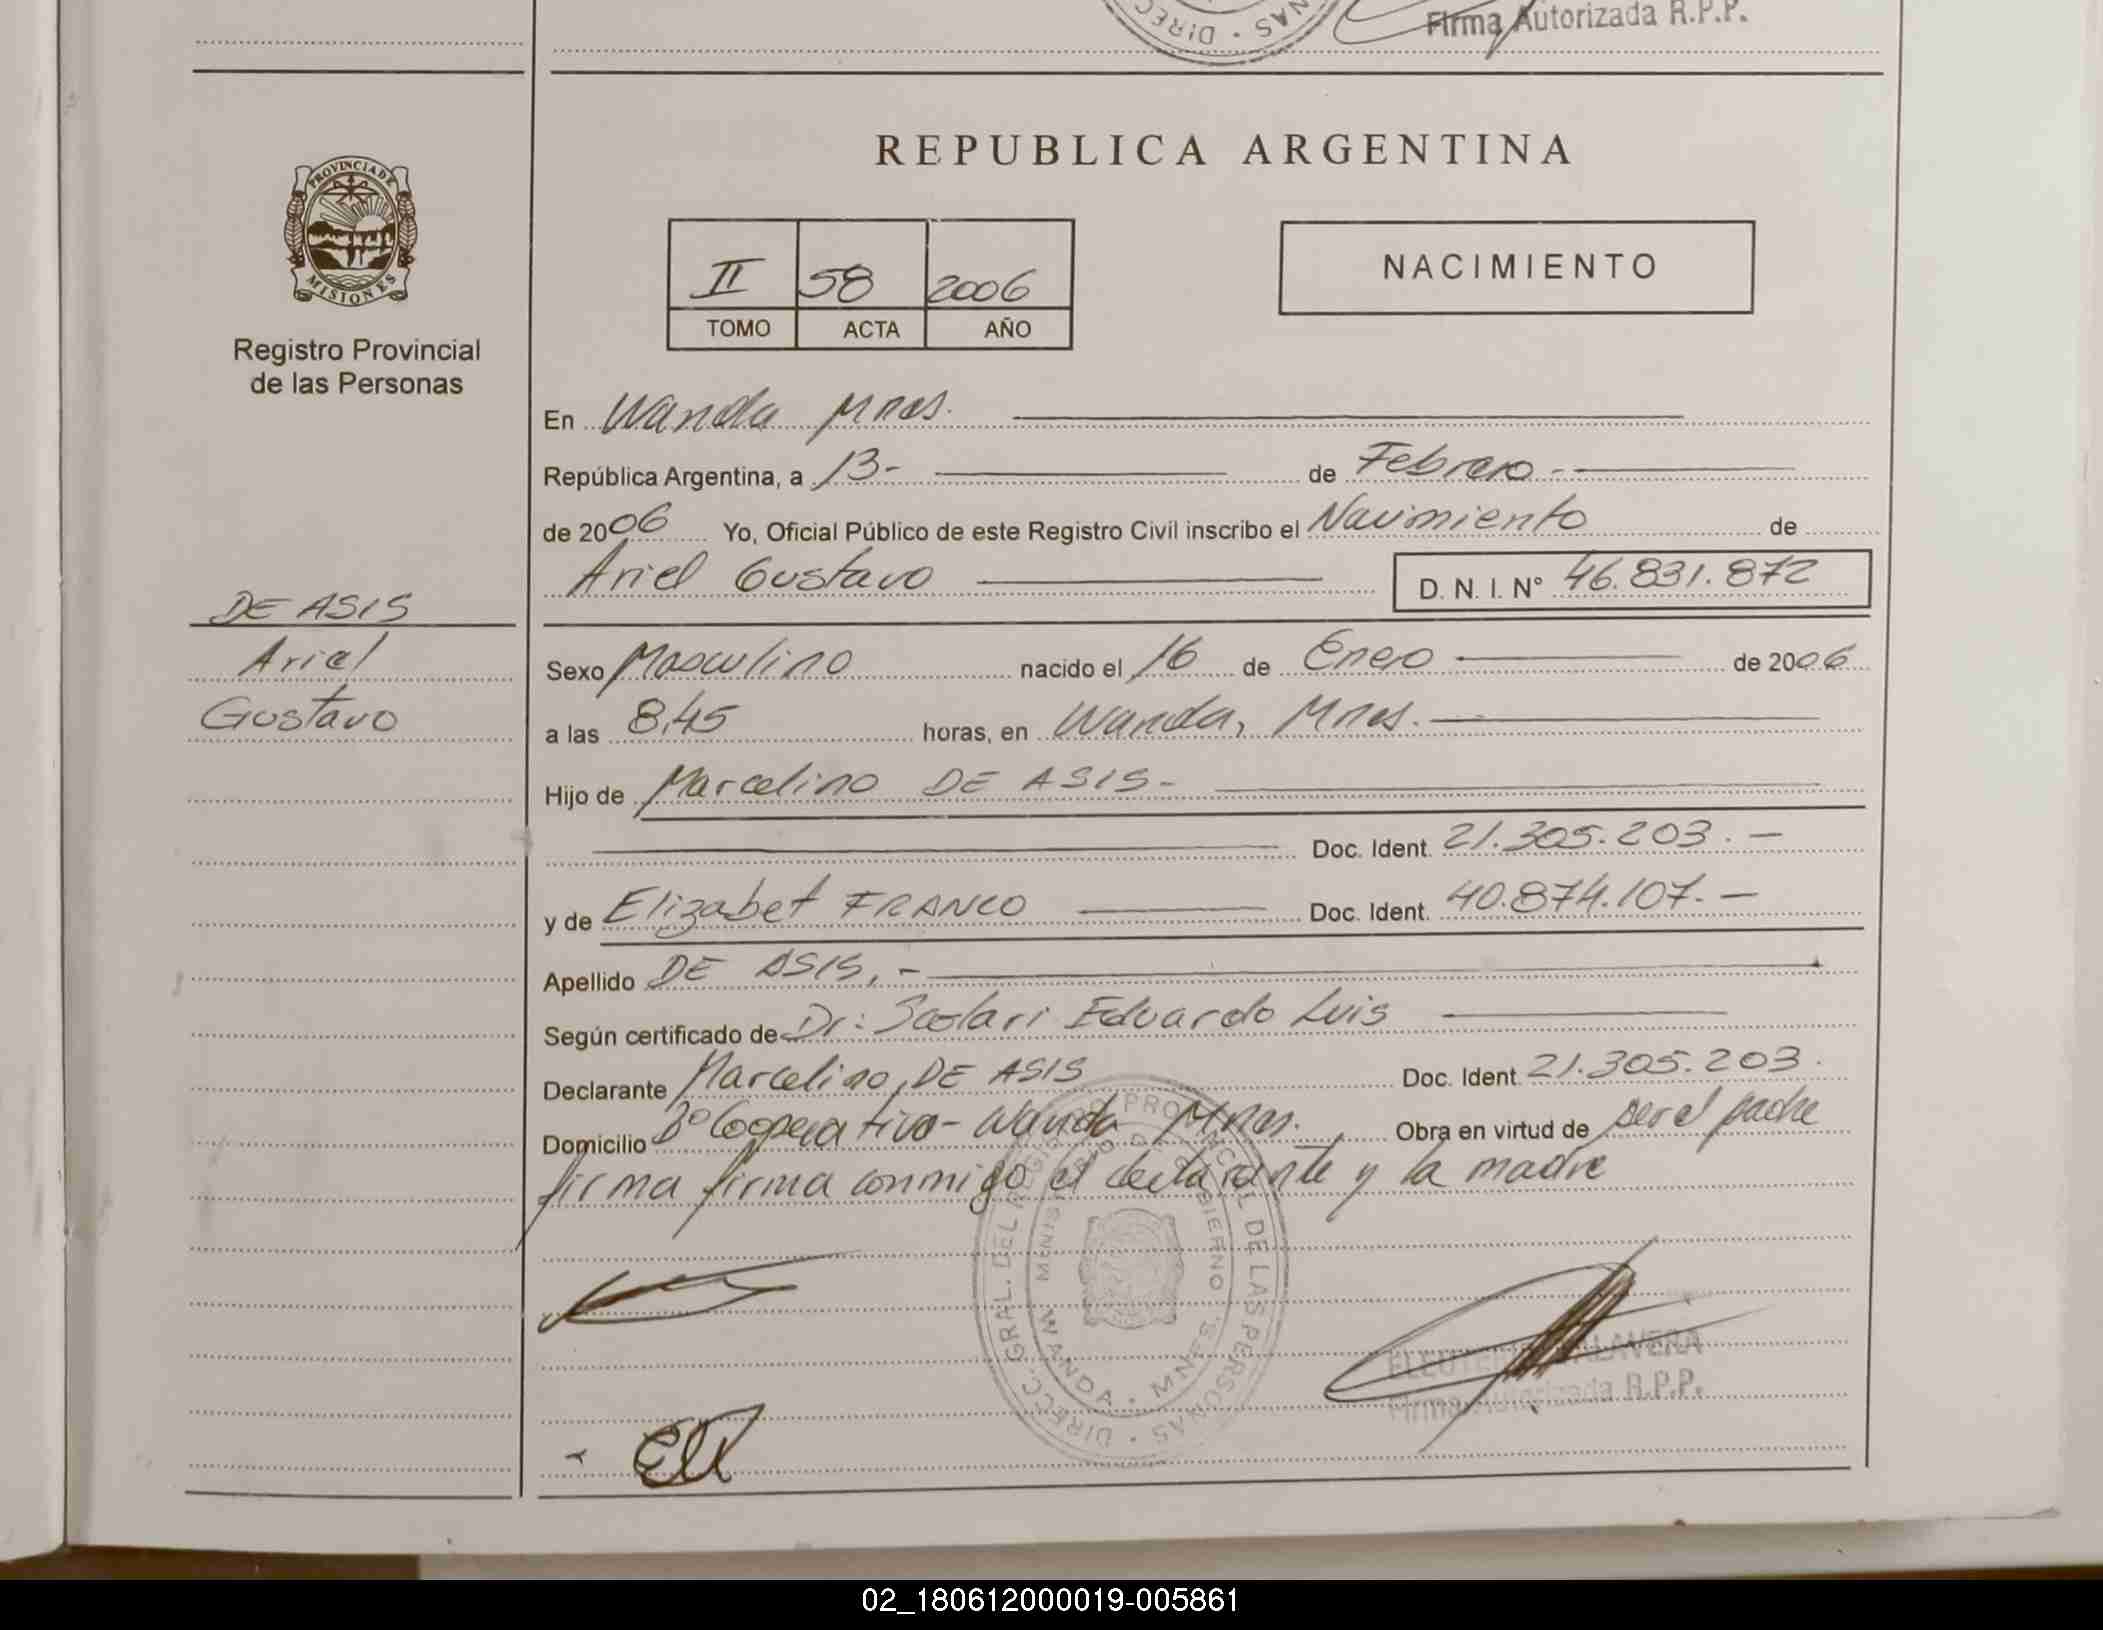 Firma Autorizada R.P.P.
PROVINCIA DE
MISIONES
Registro Provincial
de las Personas
DE ASIS
Ariel
Gustavo
REPUBLICA ARGENTINA
II 58 2006
TOMO ACTA AÑO
NACIMIENTO
En Wanda Mnes.
República Argentina, a 13- de Febrero -
de 2006 Yo, Oficial Público de este Registro Civil inscribo el Nacimiento de
Ariel Gustavo D. N. I. N° 46.831.872
Sexo Masculino nacido el 16 de Enero de 2006
a las 8,45 horas, en Wanda, Mnes.
Hijo de Marcelino DE ASIS-
Doc. Ident. 21.305.203. —
y de Elizabet FRANCO Doc. Ident. 40.874.107. —
Apellido DE ASIS, -
Según certificado de Dr: Eduardo Luis
Declarante Marcelino, DE ASIS Doc. Ident. 21.305.203.
Domicilio Bº Cooperativo - Wanda Mnes. Obra en virtud de ser el padre
firma firma conmigo el declarante y la madre
DIRECC. GRAL. DEL REGISTRO PROVINCIAL DE LAS PERSONAS
MINISTERIO DE GOBIERNO
WANDA • MNES.
ELEUTERIO TALAVERA
Firma Autorizada R.P.P.
02_180612000019-005861